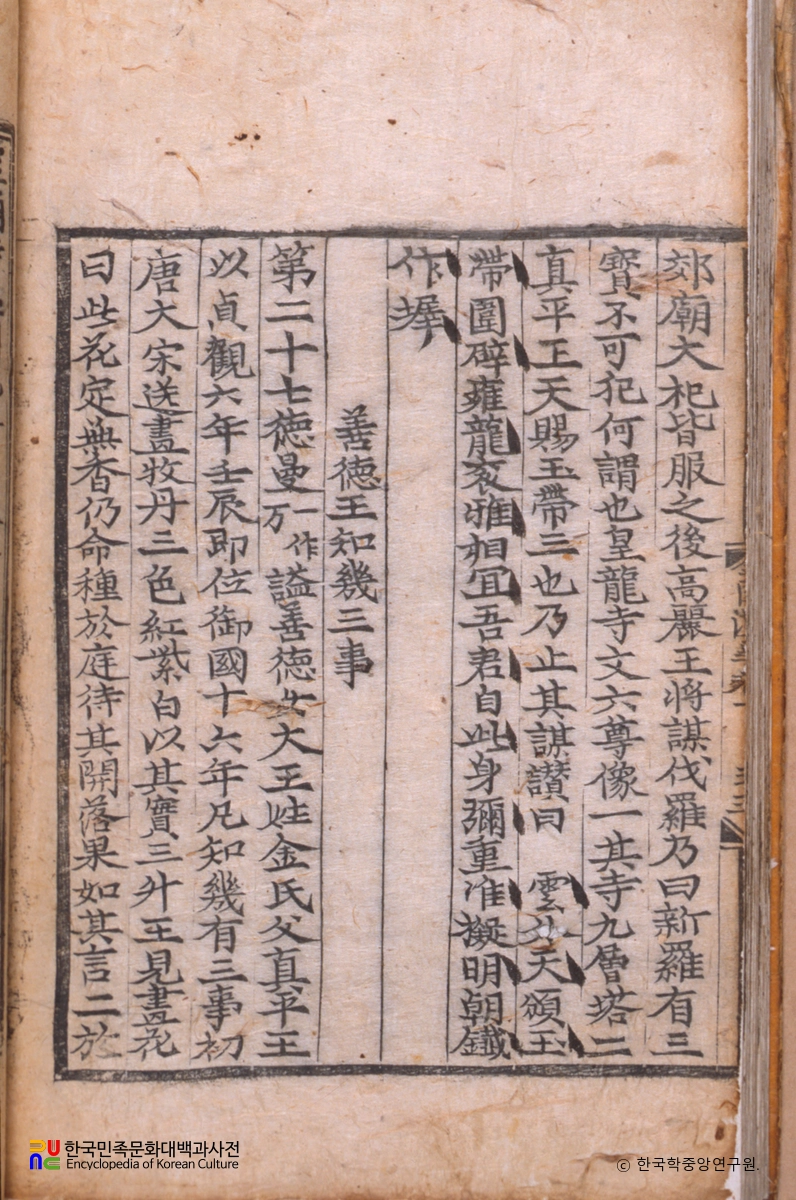 郊廟大祀皆服之後高麗王將謀伐羅乃曰新羅有三
寶不可犯何謂也皇龍寺文六尊像一其寺九層塔二
真平王天賜玉帶三也乃止其謀讃曰 雲外天頒玉
帶圍辟雍龍衮雅相冝吾君自此身彌重准擬明朝鐵
作墀
善德王知幾三事
第二十七德曼一作万謚善德女大王姓金氏父真平王
以貞觀六年壬辰即位御國十六年凡知幾有三事初
唐大宋送畫牧丹三色紅紫白以其實三升王見畫花
曰此花定無香仍命種於庭待其開落果如其言二於
한국민족문화대백과사전
Encyclopedia of Korean Culture
© 한국학중앙연구원.